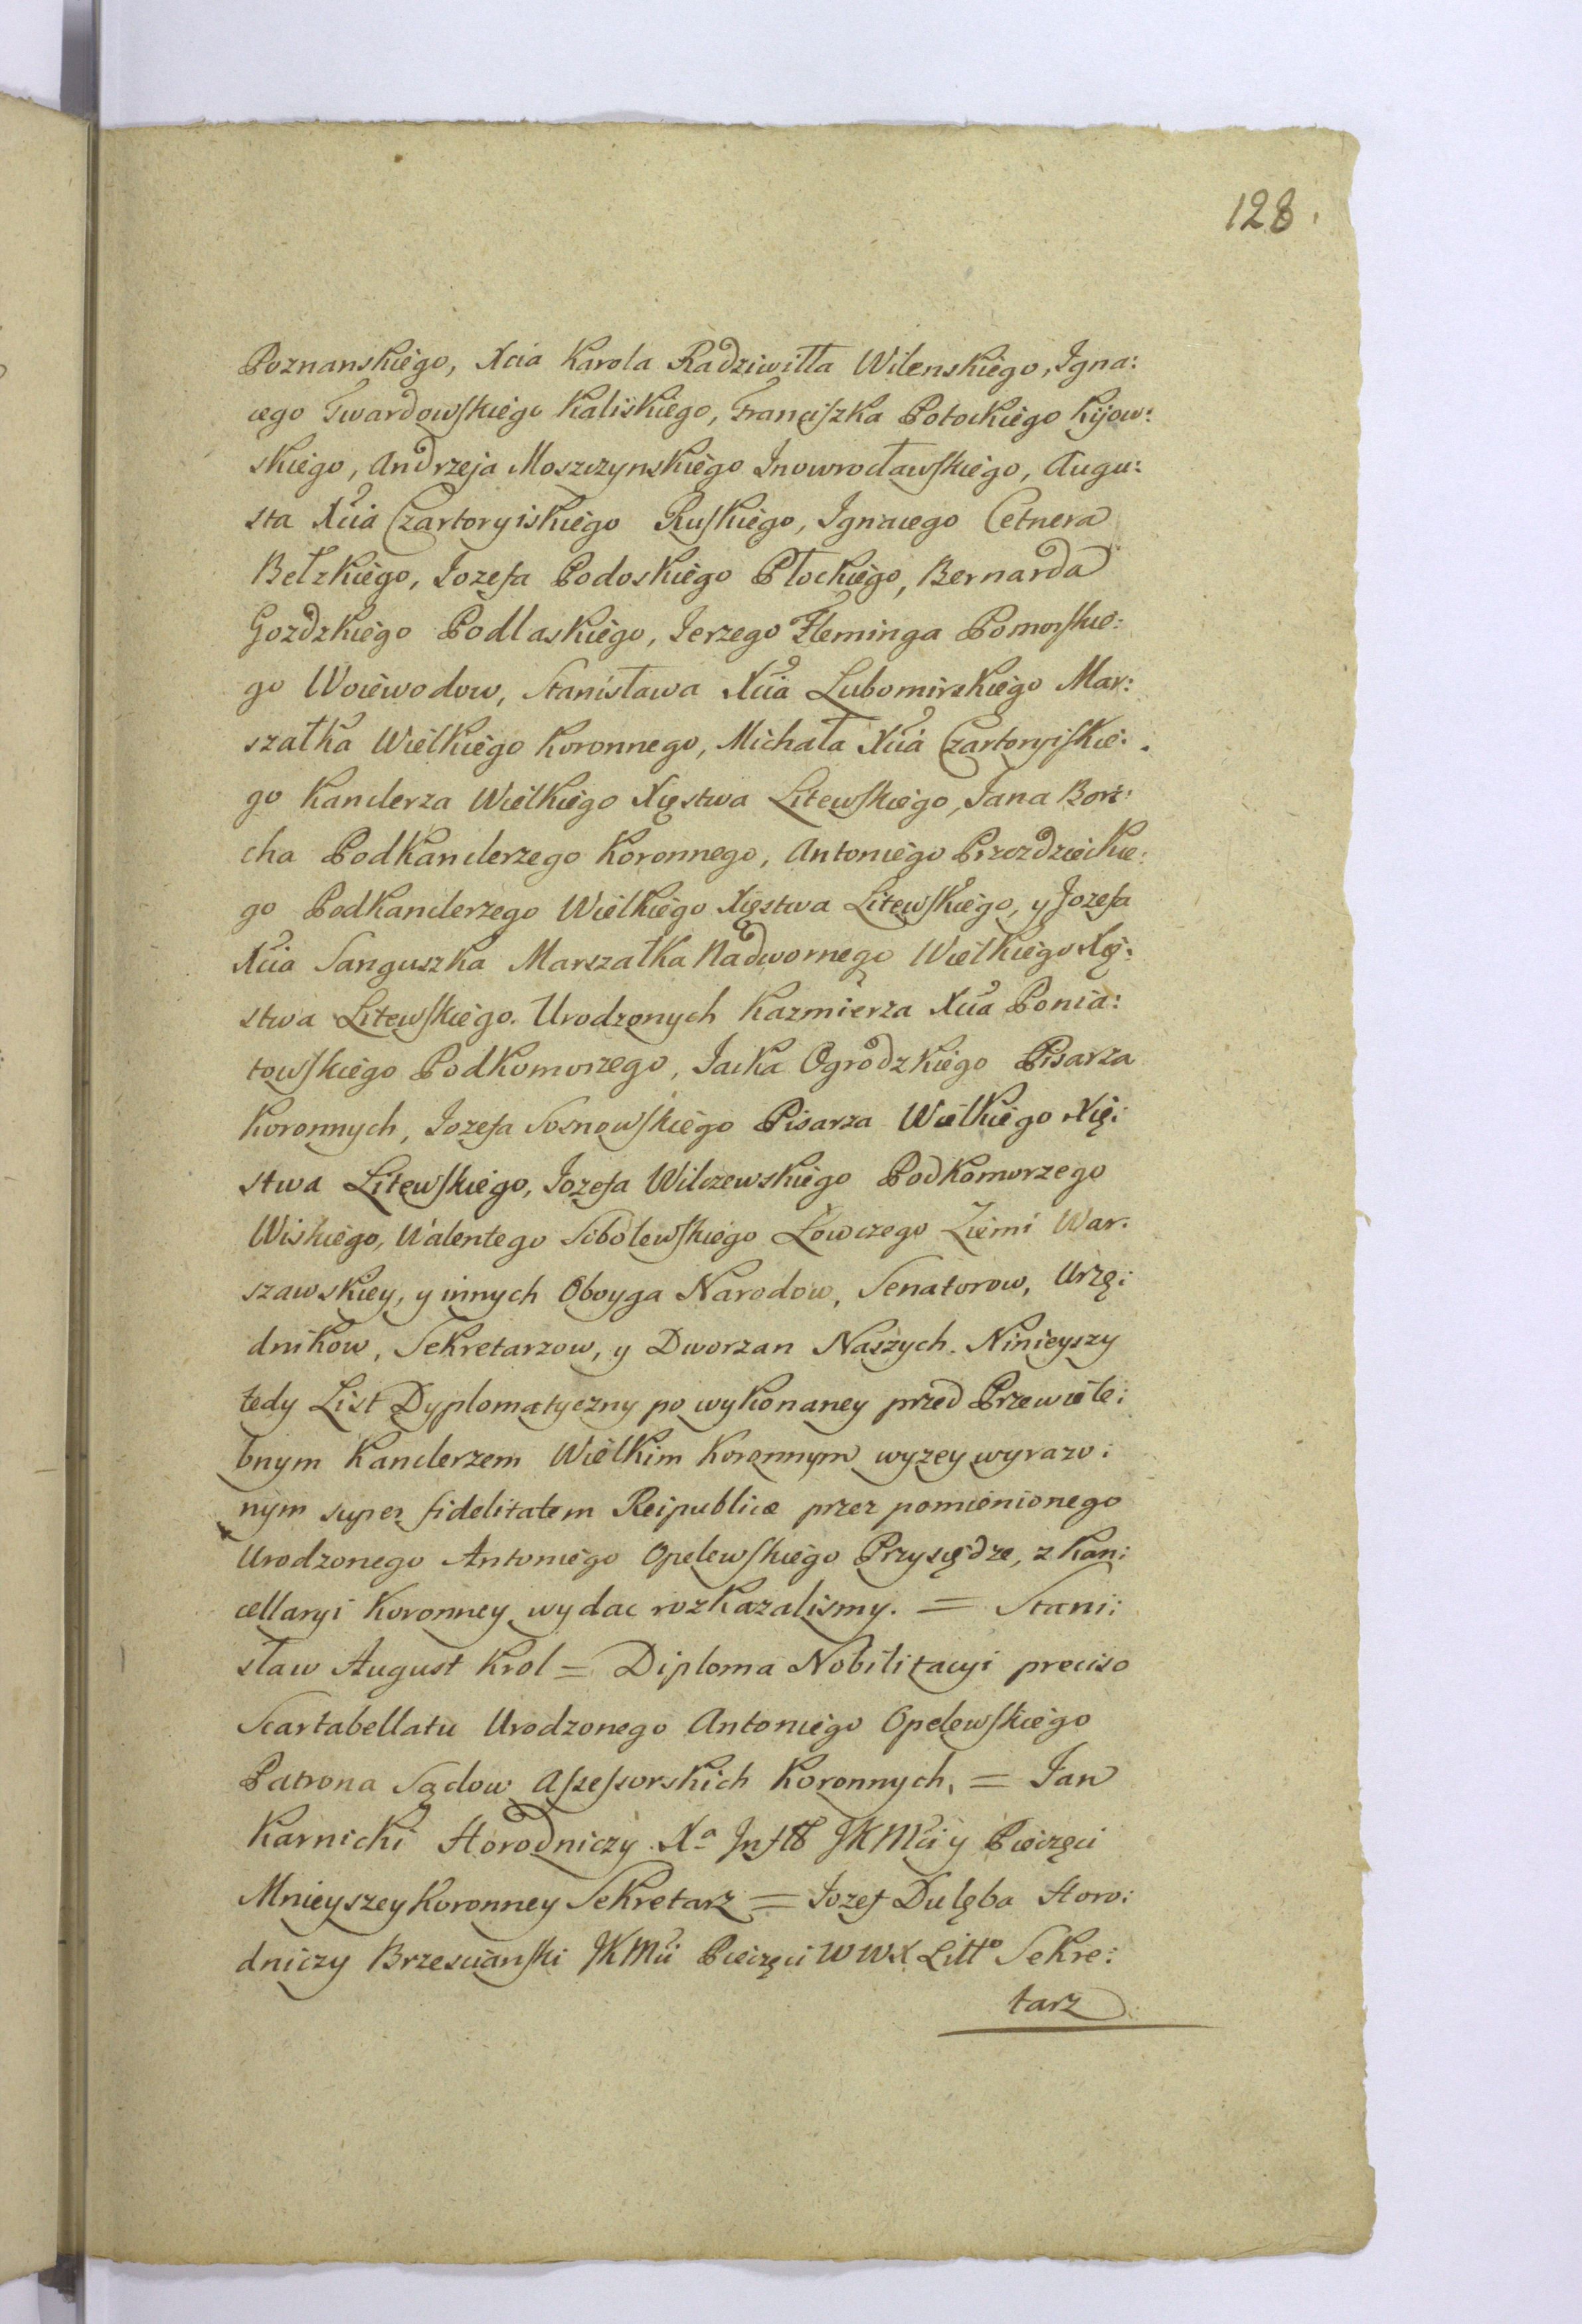 128.
Poznanskiego, Xcia Karola Radziwiłła Wilenskiego, Igna:
cego Twardowskiego Kaliskiego, Franciszka Potockiego Kijow:
skiego, Andrzeja Moszczynskiego Inowrocławskiego, Augu:
sta Xcia Czartoryiskiego Ruskiego, Ignacego Cetnera
Bełzkiego, Jozefa Podoskiego Płockiego, Bernarda
Gozdzkiego Podlaskiego, Jerzego Fleminga Pomorskie:
go Woiewodow, Stanisława Xcia Lubomirskiego Mar:
szałka Wielkiego Koronnego, Michała Xcia Czartoryiskie:
go Kanclerza Wielkiego Xięstwa Litewskiego, Jana Bort:
cha Podkanclerzego Koronnego, Antoniego Przezdzieckie:
go Podkanclerzego Wielkiego Xięstwa Litewskiego, y Jozefa
Xcia Sanguszka Marszałka Nadwornego Wielkiego Xię:
stwa Litewskiego. Urodzonych Kazmierza Xcia Ponia:
towskiego Podkomorzego, Jacka Ogrodzkiego Pisarza
Koronnych, Jozefa Sosnowskiego Pisarza Wielkiego Xię:
stwa Litewskiego, Jozefa Wilczewskiego Podkomorzego
Wiskiego, Walentego Sobolewskiego Łowczego Ziemi War:
szawskiey, y innych Oboyga Narodow, Senatorow, Urzę:
dnikow, Sekretarzow, y Dworzan Naszych. Ninieyszy
tedy List Dyplomatyczny po wykonaney przed Przewiele:
bnym Kanclerzem Wielkim Koronnym wyzey wyrazo:
nym super fidelitatem Reipublicæ przez pomienionego
Urodzonego Antoniego Opelewskiego Przysiędze, z Kan:
cellaryi Koronney wydac rozkazalismy. = Stani:
sław August Krol = Diploma Nobilitacyi preciso
Scartabellatu Urodzonego Antoniego Opelewskiego
Patrona Sądow Assessorskich Koronnych. = Jan
Karnicki Horodniczy Xa Inflt JKMci y Pieczęci
Mnieyszey Koronney Sekretarz = Jozef Dulęba Horo:
dniczy Brzescianski JKMci Pieczęci W W X Litto Sekre:
tarz